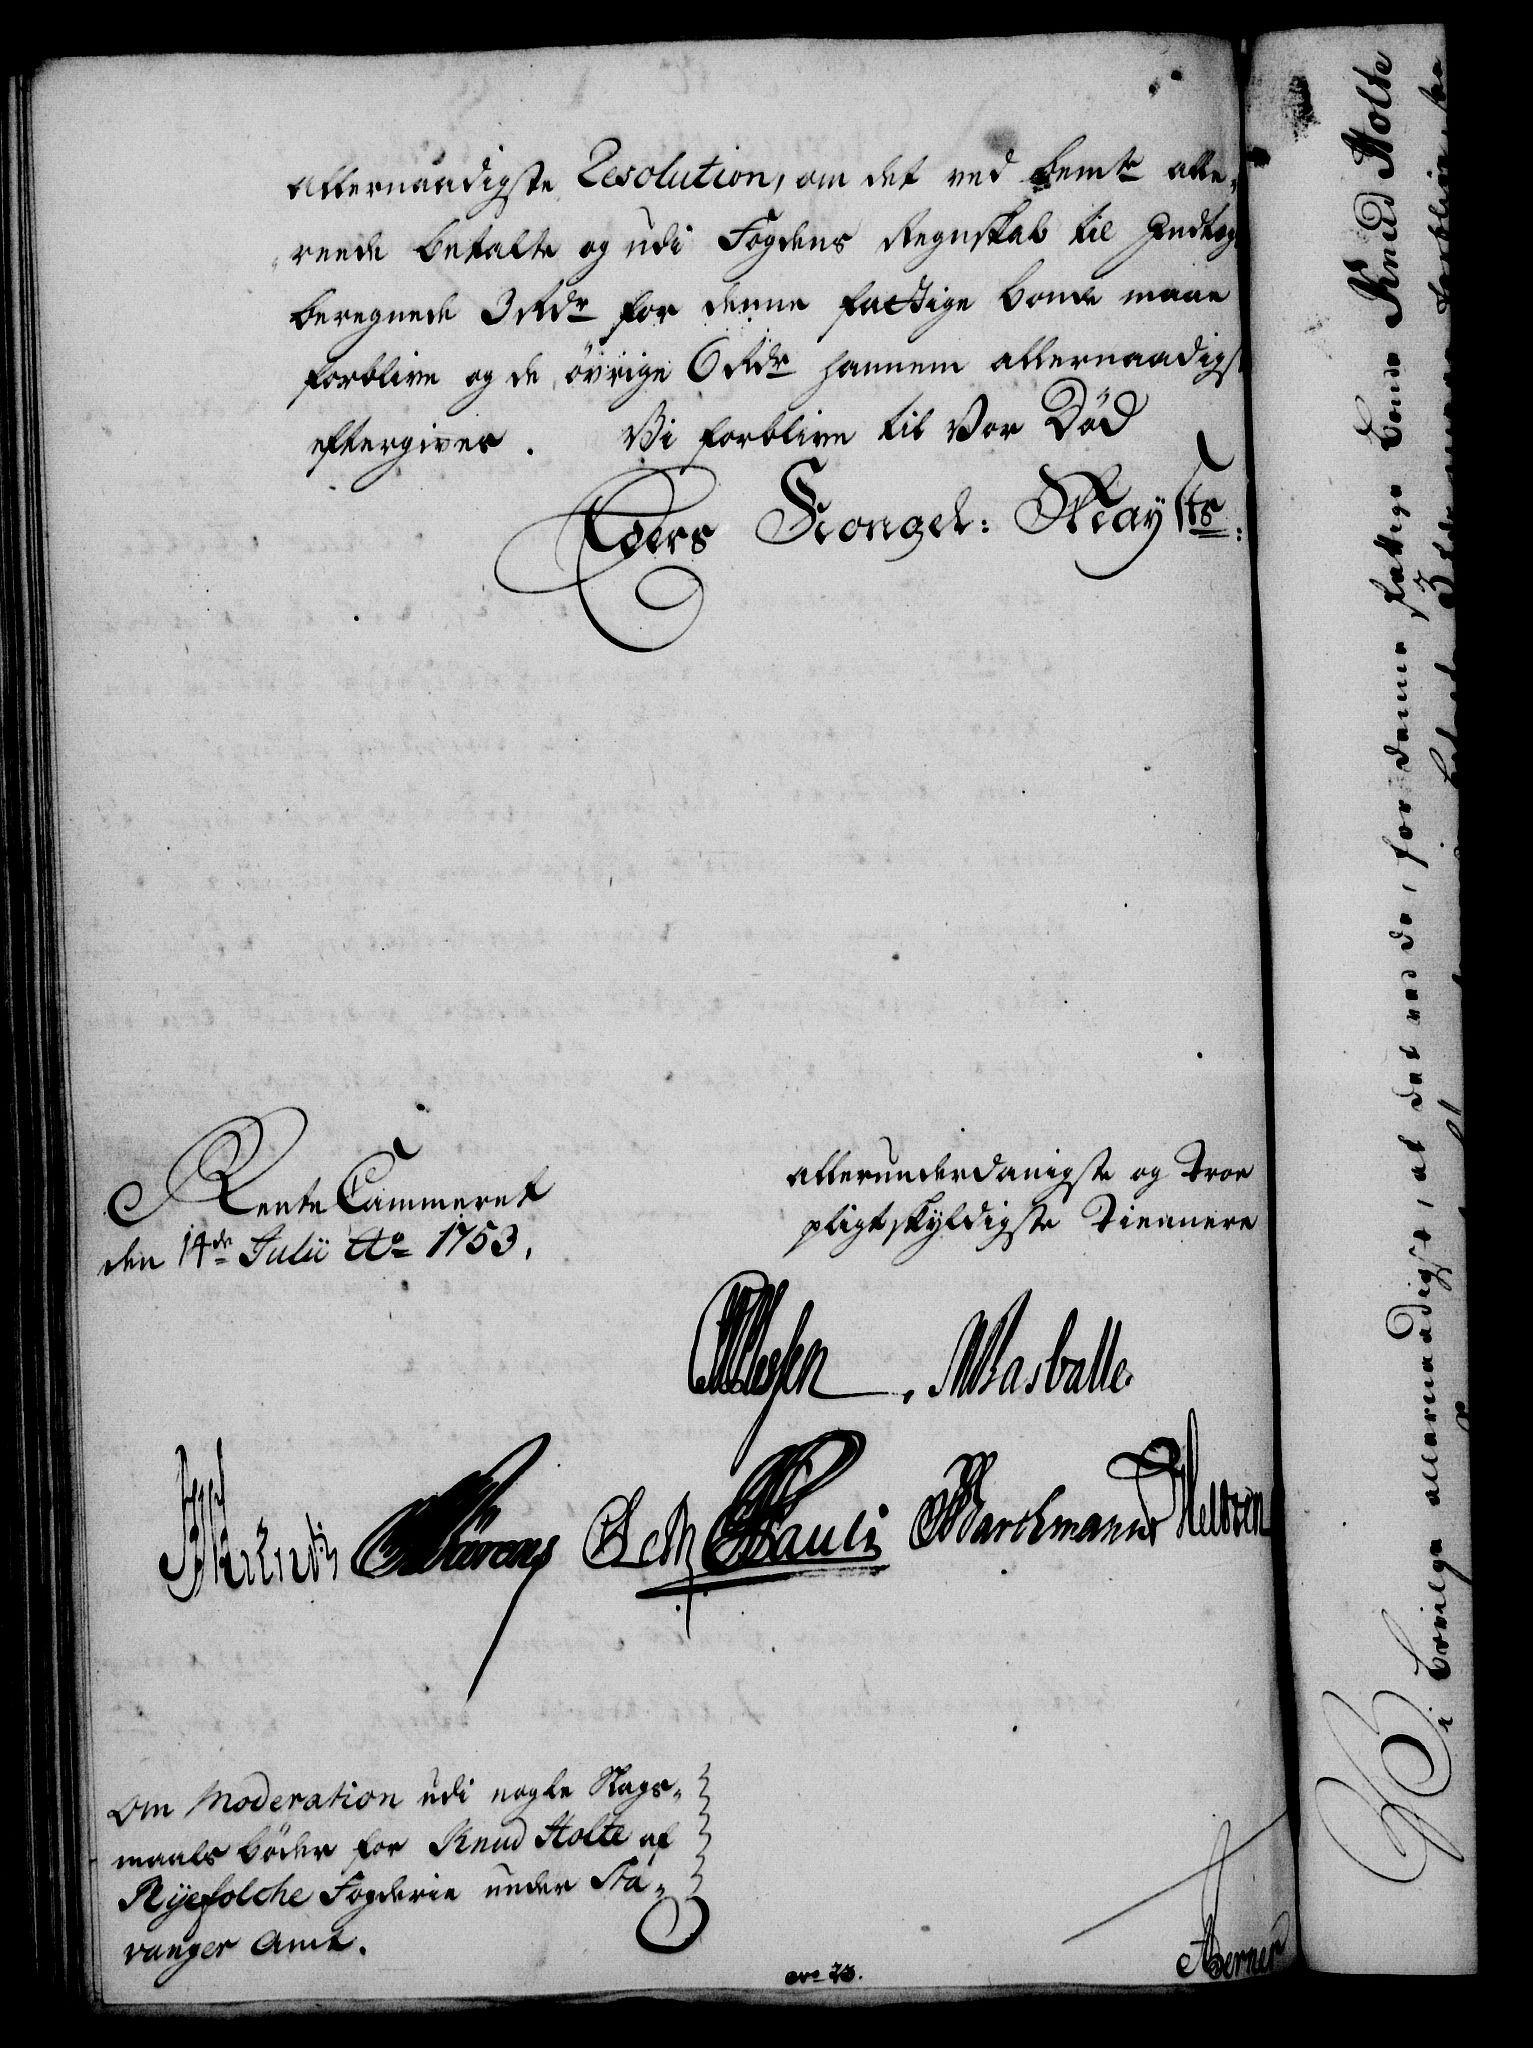 allernaadigste Resolution, om det ved bemte alle-
reede betalte og udi Fogdens Regnskab til Indtægt
beregnede 3 Rdr for denne fattige bonde maae
forblive og de övrige 6 Rdr hannem allernaadigst
eftergives. Vi forblive til Vor Död
Eders Kongel: Maysts:
Rente Cammeret
den 14de Julii Ao 1753.
allerunderdanigste og Troe
pligtskyldigste Tienere
Wasballe.
Pauli
Marckmann
Om Moderation udi nogle Slags-
maals böder for Knud Holte af
Ryefolche Fogderie under Sta-
vanger Amt.
no 23.
Vi bevilge allernaadigst, at det ved de, for denne fattige bonde Knud Holte